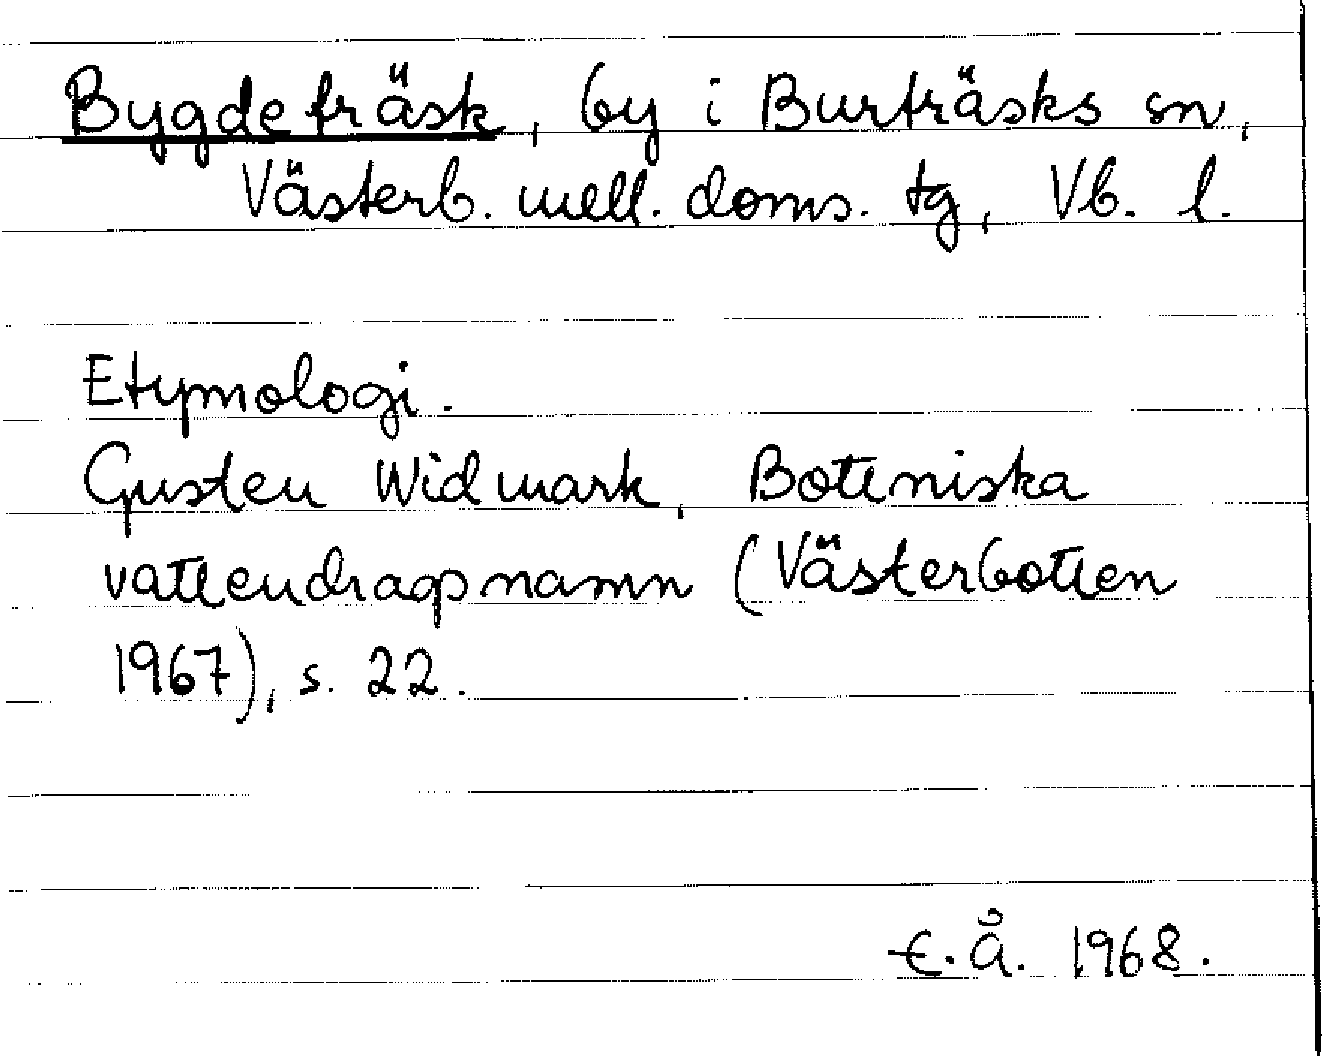 Bygdeträsk, by i Burträsks sn,
Västerb. mell. doms. tg, Vb. l.
Etymologi.
Gusten Widmark, Botniska
vattendragsnamn (Västerbotten
1967), s. 22.
E.Å. 1968.